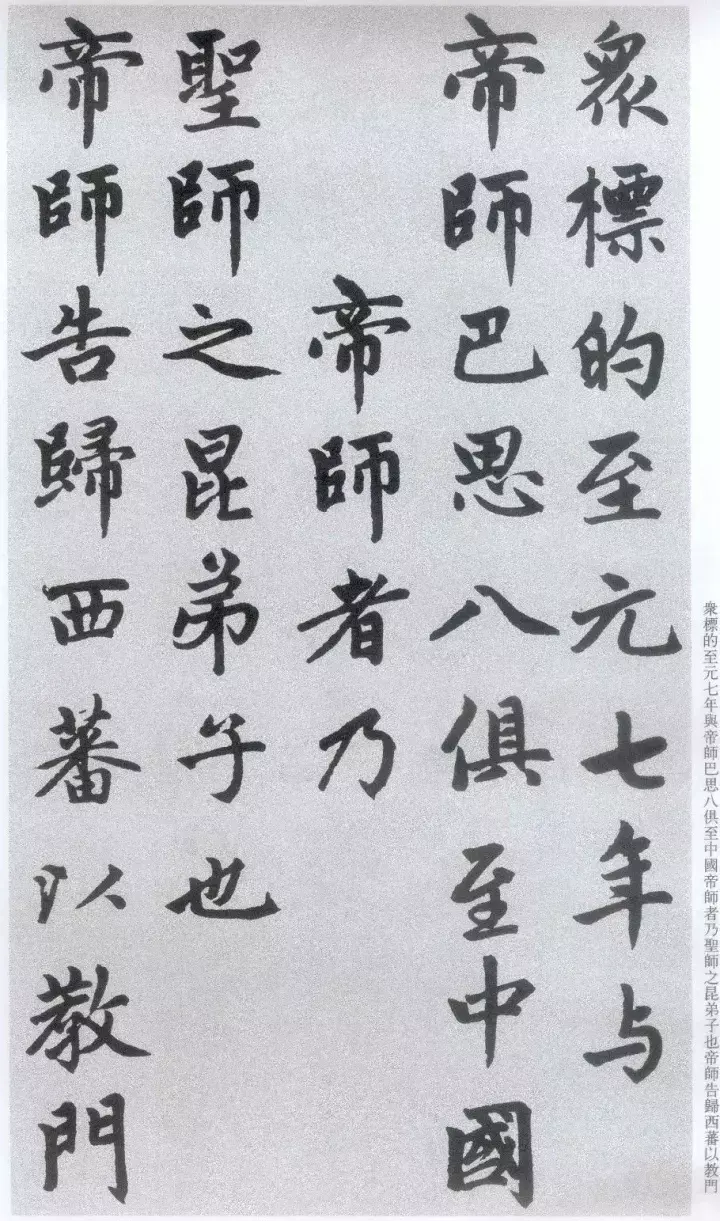 衆標的至元七年与
帝師巴思八俱至中國
帝師者乃
聖師之昆弟子也
帝師告歸西蕃以教門
衆標的至元七年與帝師巴思八俱至中國帝師者乃聖師之昆弟子也帝師告歸西蕃以教門